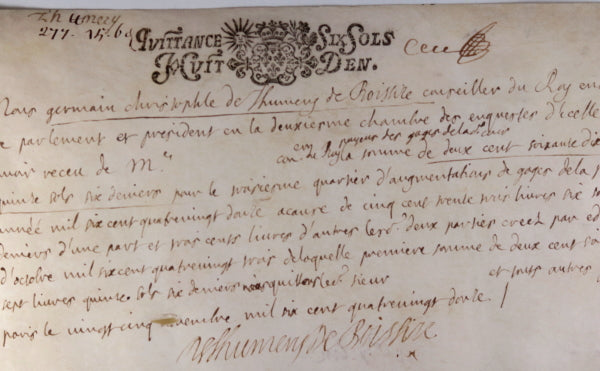 Thumery
277. 15. 6d
QUITTANCE SIX SOLS
HUIT DEN.
Nous germain christophle de Thumery de Boissize conseiller du Roy en
parlement et president en la deuxiesme chambre des enquestes d'icelle
avoir receu de Mr. con. du Roy payeur des gages de la cour
la somme de deux cent soixante dix
quinze sols six deniers pour le troisiesme quartier d'augmentations de gages de la
année mil six cent quatrevingt douze acause de cinq cent trente trois livres six
deniers d'une part et trois cents livres d'autres deux parties creez par
d'octobre mil six cent quatrevingt trois de laquelle premiere somme de deux cent
sept livres quinze sols six deniers sieur et touts autres
paris le vingt cinq mil six cent quatrevingt douze.
De Thumery de Boissize